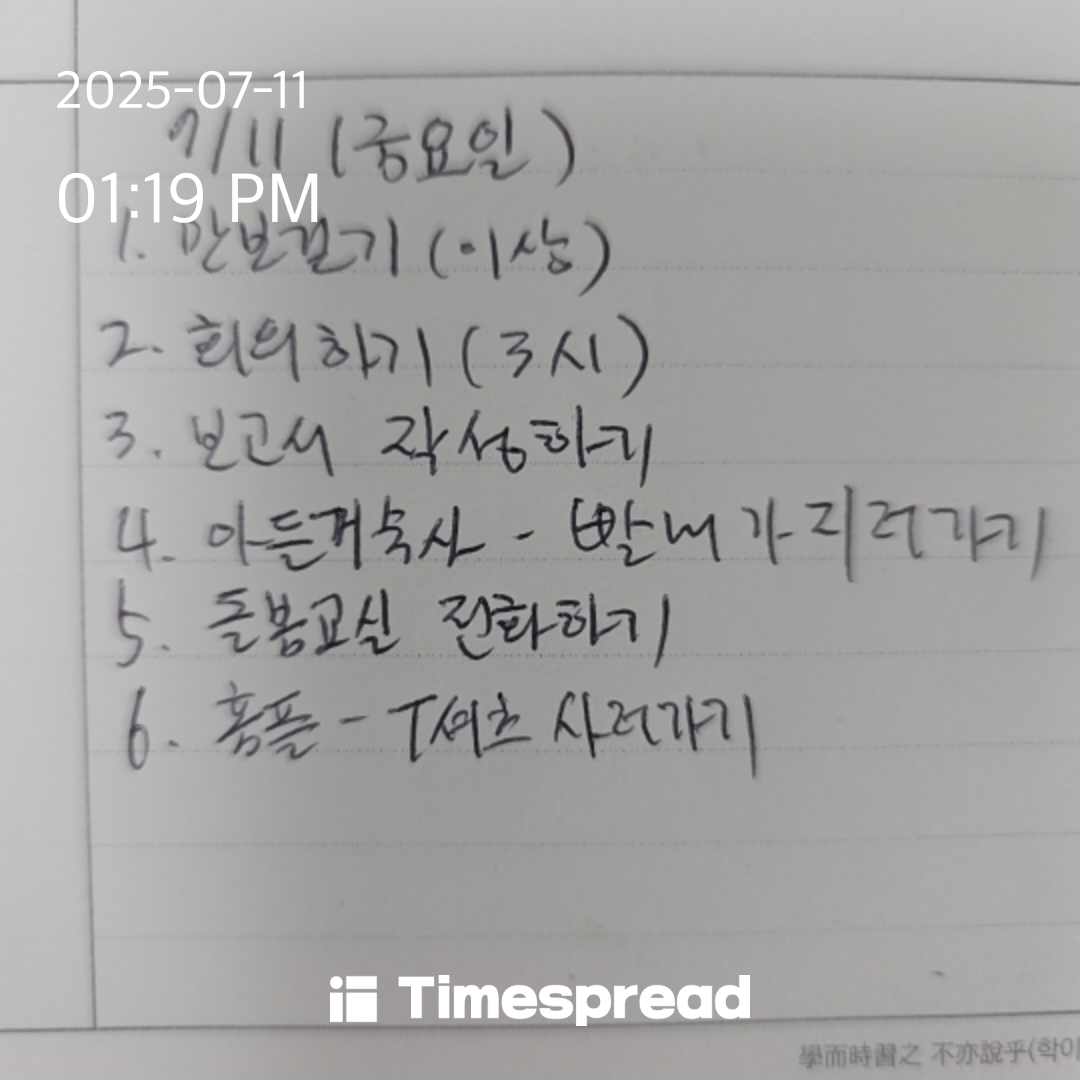 2025-07-11
7/11 (금요일)
01:19 PM
1. 만보걷기 (이상)
2. 회의하기 (3시)
3. 보고서 작성하기
4. 아들기숙사 - 빨래 가지러가기
5. 돌봄교실 전화하기
6. 홈플 - T셔츠 사러가기
Timespread
學而時習之 不亦說乎(학이